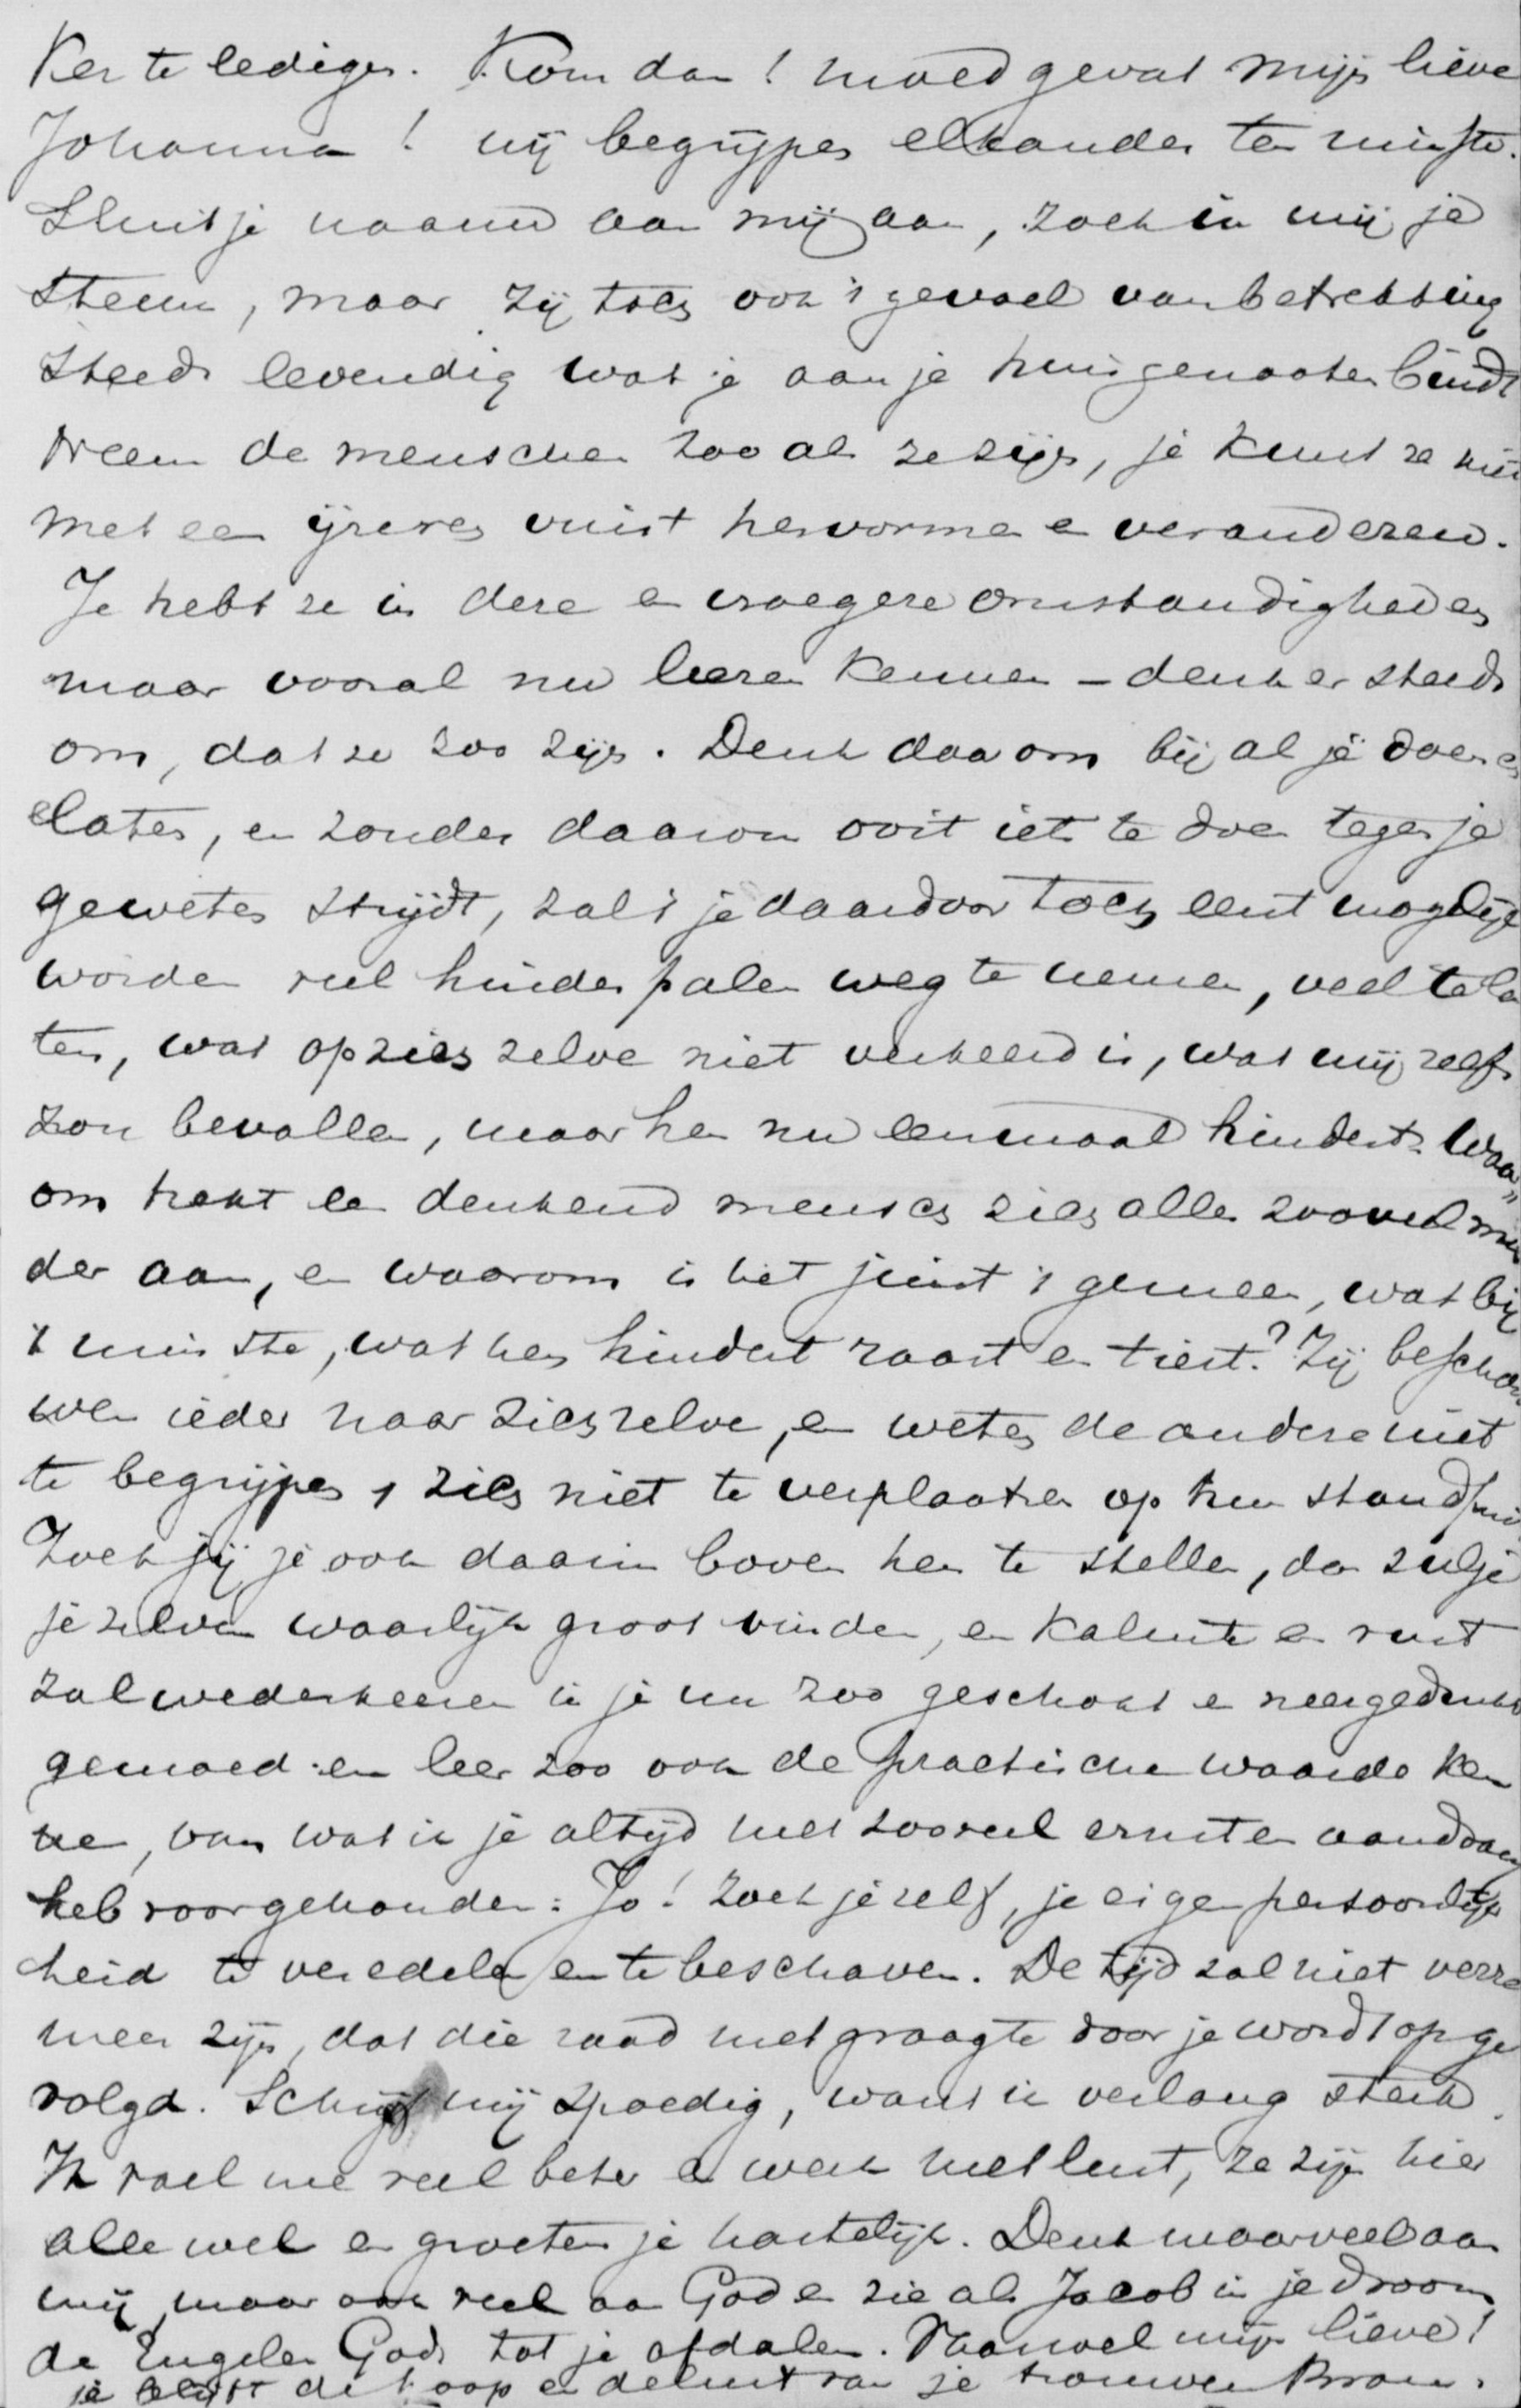 ker te ledigen. Kom dan! moed gevat mijn lieve
Johanna! wij begrijpen elkander ten minste.
Sluit je naauw aan mij aan, zoek in mij je
steun, maar zij toch ook 't gevoel van betrekking
steeds levendig wat je aan je huisgenooten bindt
Neem de menschen zoo als ze zijn, je kunt ze niet
met een ijzeren vuist hervormen en veranderen.
Je hebt ze in deze en vroegere omstandigheden
maar vooral nu leeren kennen – denk er steeds
om, dat ze zoo zijn. Denk daarom bij al je doen en
laten, en zonder daarom ooit iets te doen tegen je
geweten strijdt, zal 't je daardoor toch eerst mogelijk
worden veel hinderpalen weg te nemen, veel te la
ten, wat op zich zelve niet verkeerd is, wat mij zelfs
zou bevallen, maar hen nu eenmaal hindert. Waar„
om trekt een denkend mensch zich alles zooveel min
der aan, en waarom is het juist 't gemeen, wat bij
't minste, wat hen hindert raast en tiert? Zij beschou
wen ieder naar zich zelve, en weten de andere niet
te begrijpen, zich niet te verplaatsen op hun standpunt
Zoek jij je ook daarin boven hen te stellen, dan zul je
je zelven waarlijk groot vinden, en kalmte en rust
zal wederkeeren in je nu zoo geschokt en neergedrukt
gemoed: en leer zoo ook de practische waarde ken
nen, van wat ik je altijd met zooveel ernst en aandrang
heb voorgehouden: Jo! zoek je zelf, je eigen persoonlijk
heid te veredelen en te beschaven. De tijd zal niet verre
meer zijn, dat die raad met graagte door je wordt opge
volgd. Schrijf mij spoedig, want ik verlang sterk.
Ik voel me veel beter en werk met lust, ze zijn hier
alle wel en groeten je hartelijk. Denk maar veel aan
mij, maar ook veel aan God en zie als Jacob in je droom
de Engelen Gods tot je afdalen. Vaarwel mijn lieve!
je blijft de hoop en de lust van je trouwen Bram.